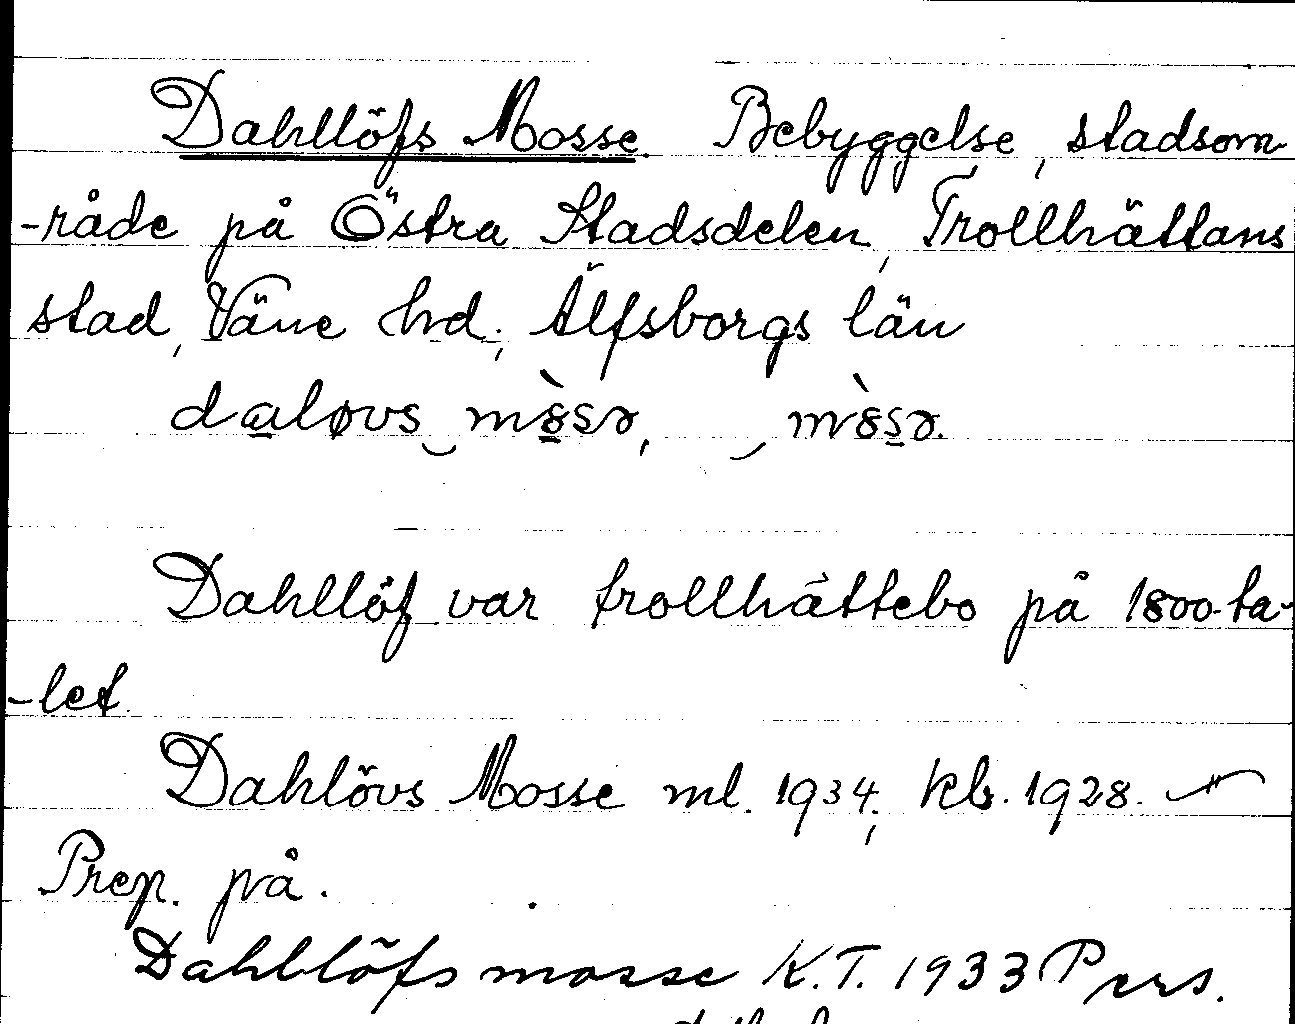 Dahllöfs Mosse. Bebyggelse, stadsom-
-råde på Östra Stadsdelen, Trollhättans
stad, Väne hd; Älfsborgs län
Dahllöf var trollhättebo på 1800-ta-
-let.
Dahlövs Mosse ml. 1934; kb. 1928.
Prep. på.
Dahllöfs mosse K.T. 1933 Pers.